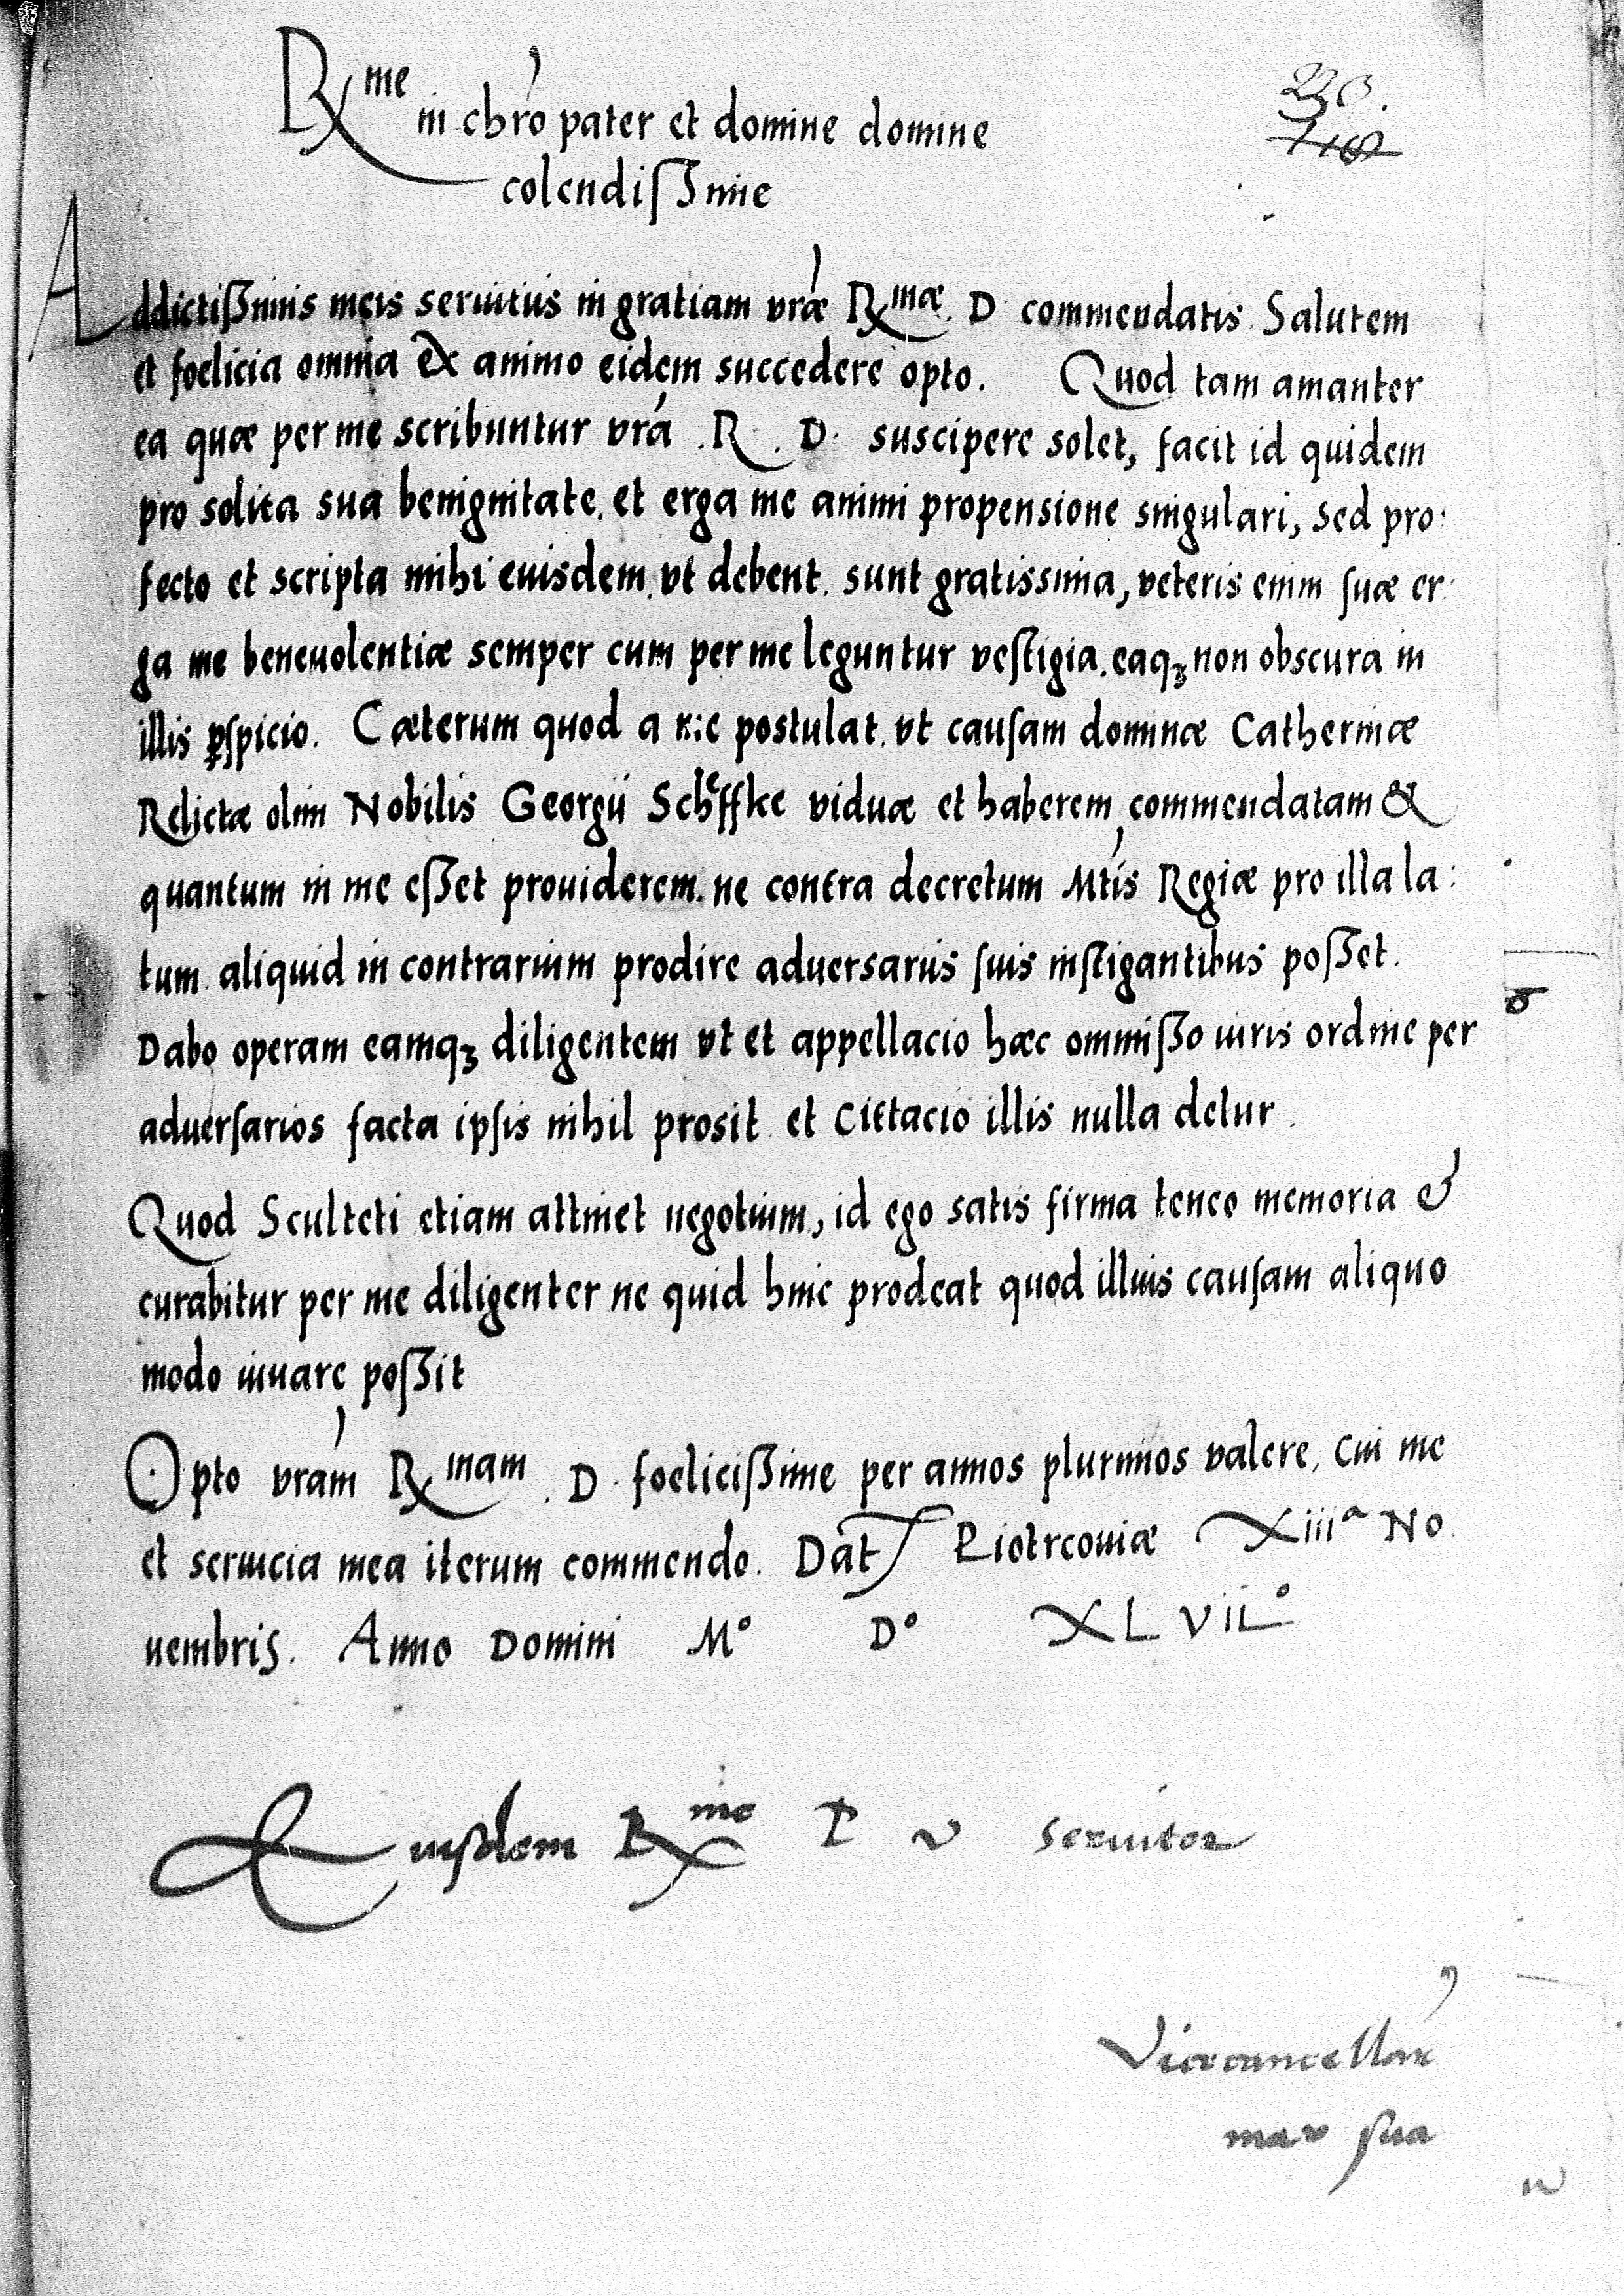 Rme in chro pater et domine domine
230.
colendissime
Addictissimis meis seruitiis in gratiam vræ Rmæ. D commendatis. Salutem
et foelicia omnia ex animo eidem succedere opto. Quod tam amanter
ea quæ per me scribuntur vra .R. D. suscipere solet, facit id quidem
pro solita sua benignitate. et erga me animi propensione singulari, sed pro:
fecto et scripta mihi eiusdem. vt debent. sunt gratissima, veteris enim suæ er:
ga me beneuolentiæ semper cum per me leguntur vestigia. eaqꝫ non obscura in
illis ꝑspicio. Cæterum quod a me postulat. vt causam dominæ Catherinæ
Relictæ olim Nobilis Georgii Scheffke viduæ et haberem commendatam &
quantum in me esset prouiderem. ne contra decretum Mtis Regiæ pro illa la:
tum. aliquid in contrarium prodire aduersariis suis instigantibus posset.
Dabo operam eamqꝫ diligentem vt et appellacio hæc ommisso iuris ordine per
aduersarios facta ipsis nihil prosit. et Cittacio illis nulla detur.
Quod Sculteti etiam attinet negotium, id ego satis firma teneo memoria &
curabitur per me diligenter ne quid hinc prodeat quod illius causam aliquo
modo iuuare possit
Opto vram Rmam. D. foelicissime per annos plurimos valere, Cui me
et seruicia mea iterum commendo. Dat Piotrcouiæ XIIIa No
uembris. Anno Domini Mo Do XLVIIo
Eiusdem Rme P v seruitor
Vicecancellar
mao sua